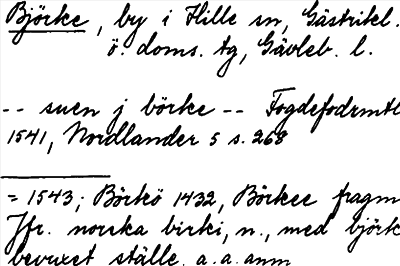 Björke, by i Hille sn, Gästrikl.
ö. doms. tg, Gävleb. l.
-- suen j börke -- Fogdefodrmtl
1541, Nordlander 5 s. 268
= 1543; Börkö 1432, Börkee fragm
Jfr. norska birki, n., med björk
bevuxet ställe. a. a. anm